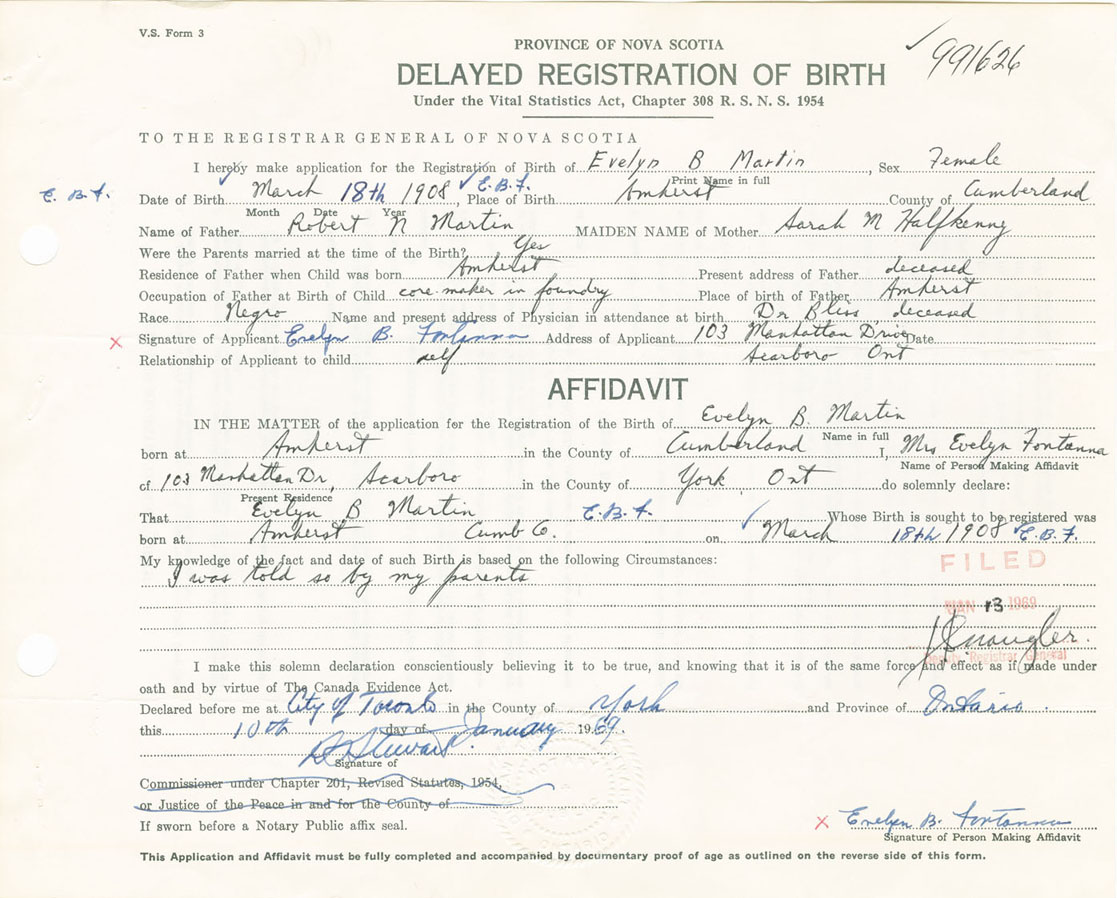 V.S. Form 3
PROVINCE OF NOVA SCOTIA
991626
DELAYED REGISTRATION OF BIRTH
Under the Vital Statistics Act, Chapter 308 R. S. N. S. 1954
TO THE REGISTRAR GENERAL OF NOVA SCOTIA
I hereby make application for the Registration of Birth of Evelyn B Martin, Sex Female
Print Name in full
E. B. F. Date of Birth March 18th 1908 E.B.F., Place of Birth Amherst County of Cumberland
Month Date Year
Name of Father Robert N Martin MAIDEN NAME of Mother Sarah M Halfkenny
Were the Parents married at the time of the Birth? Yes
Residence of Father when Child was born Amherst Present address of Father deceased
Occupation of Father at Birth of Child core-maker in foundry Place of birth of Father Amherst
Race Negro Name and present address of Physician in attendance at birth Dr Bliss, deceased
x Signature of Applicant Evelyn B. Fontanna Address of Applicant 103 Manhattan Drive Date
Relationship of Applicant to child self Scarboro Ont
AFFIDAVIT
IN THE MATTER of the application for the Registration of the Birth of Evelyn B. Martin
Name in full
born at Amherst in the County of Cumberland I, Mrs Evelyn Fontanna
Name of Person Making Affidavit
of 103 Manhattan Dr, Scarboro in the County of York, Ont do solemnly declare:
Present Residence
That Evelyn B Martin E.B.F. Whose Birth is sought to be registered was
born at Amherst Cumb Co. on March 18th 1908 E.B.F.
My knowledge of the fact and date of such Birth is based on the following Circumstances:
I was told so by my parents
FILED
JAN 13 1969
Deputy Registrar General
I make this solemn declaration conscientiously believing it to be true, and knowing that it is of the same force and effect as if made under
oath and by virtue of The Canada Evidence Act.
Declared before me at City of Toronto in the County of York and Province of Ontario.
this 10th day of January 1969.
Signature of
Commissioner under Chapter 201, Revised Statutes, 1954,
or Justice of the Peace in and for the County of
If sworn before a Notary Public affix seal.
x Evelyn B. Fontanna
Signature of Person Making Affidavit
This Application and Affidavit must be fully completed and accompanied by documentary proof of age as outlined on the reverse side of this form.